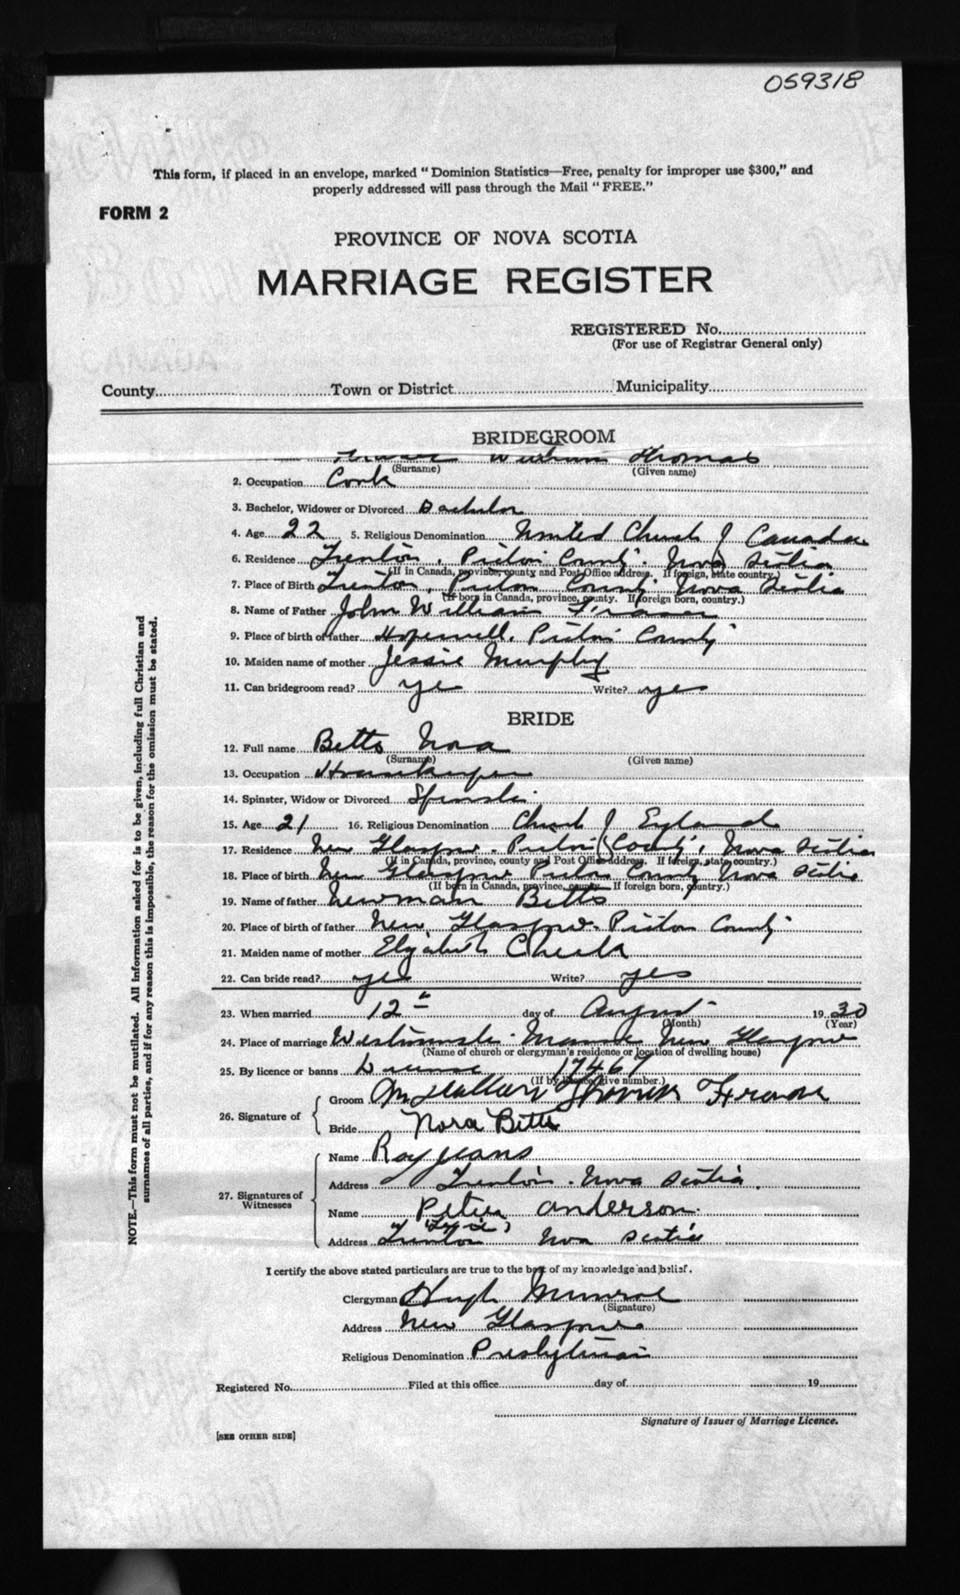 059318
This form, if placed in an envelope, marked "Dominion Statistics—Free, penalty for improper use $300," and
properly addressed will pass through the Mail "FREE."
FORM 2
PROVINCE OF NOVA SCOTIA
MARRIAGE REGISTER
REGISTERED No.
(For use of Registrar General only)
County Town or District Municipality
BRIDEGROOM
William Thomas
(Surname) (Given name)
2. Occupation Cook
3. Bachelor, Widower or Divorced Bachelor
4. Age 22 5. Religious Denomination United Church of Canada
6. Residence Trenton, Pictou County, Nova Scotia
(If in Canada, province, county and Post Office address. If foreign, state country.)
7. Place of Birth Trenton, Pictou County Nova Scotia
(If born in Canada, province, county. If foreign born, country.)
8. Name of Father John William Fraser
9. Place of birth of father Hopewell, Pictou County
10. Maiden name of mother Jessie Murphy
11. Can bridegroom read? yes Write? yes
BRIDE
12. Full name Betts Nora
(Surname) (Given name)
13. Occupation Housekeeper
14. Spinster, Widow or Divorced Spinster
15. Age 21 16. Religious Denomination Church of England
17. Residence New Glasgow, Pictou County, Nova Scotia
(If in Canada, province, county and Post Office address. If foreign, state country.)
18. Place of birth New Glasgow Pictou County Nova Scotia
(If born in Canada, province, county. If foreign born, country.)
19. Name of father Newman Betts
20. Place of birth of father New Glasgow, Pictou County
21. Maiden name of mother Elizabeth Cheek
22. Can bride read? yes Write? yes
23. When married 12th day of August 1930
(Month) (Year)
24. Place of marriage Westminster Manse New Glasgow
(Name of church or clergyman's residence or location of dwelling house)
25. By licence or banns License 17467
(If by licence, give number.)
26. Signature of
Groom Wm Thomas Fraser
Bride Nora Betts
27. Signatures of Witnesses
Name Roy Jeans
Address Trenton, Nova Scotia.
Name Peter Anderson.
Address Trenton Nova Scotia
I certify the above stated particulars are true to the best of my knowledge and belief.
Clergyman Hugh Munroe
(Signature)
Address New Glasgow
Religious Denomination Presbyterian
Registered No. Filed at this office day of 19
Signature of Issuer of Marriage Licence.
[SEE OTHER SIDE]
NOTE.—This form must not be mutilated. All information asked for is to be given, including full Christian and
surnames of all parties, and if for any reason this is impossible, the reason for the omission must be stated.